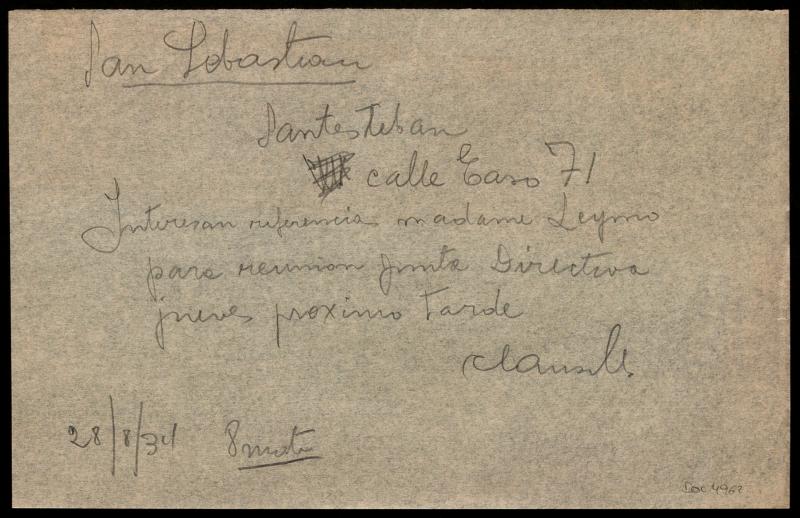 San Sebastian
Santesteban
calle Easo 71
Interesan referencias madame Leymo
para reunion Junta Directiva
jueves proximo tarde
Clausells
28/8/34
Doc 4962